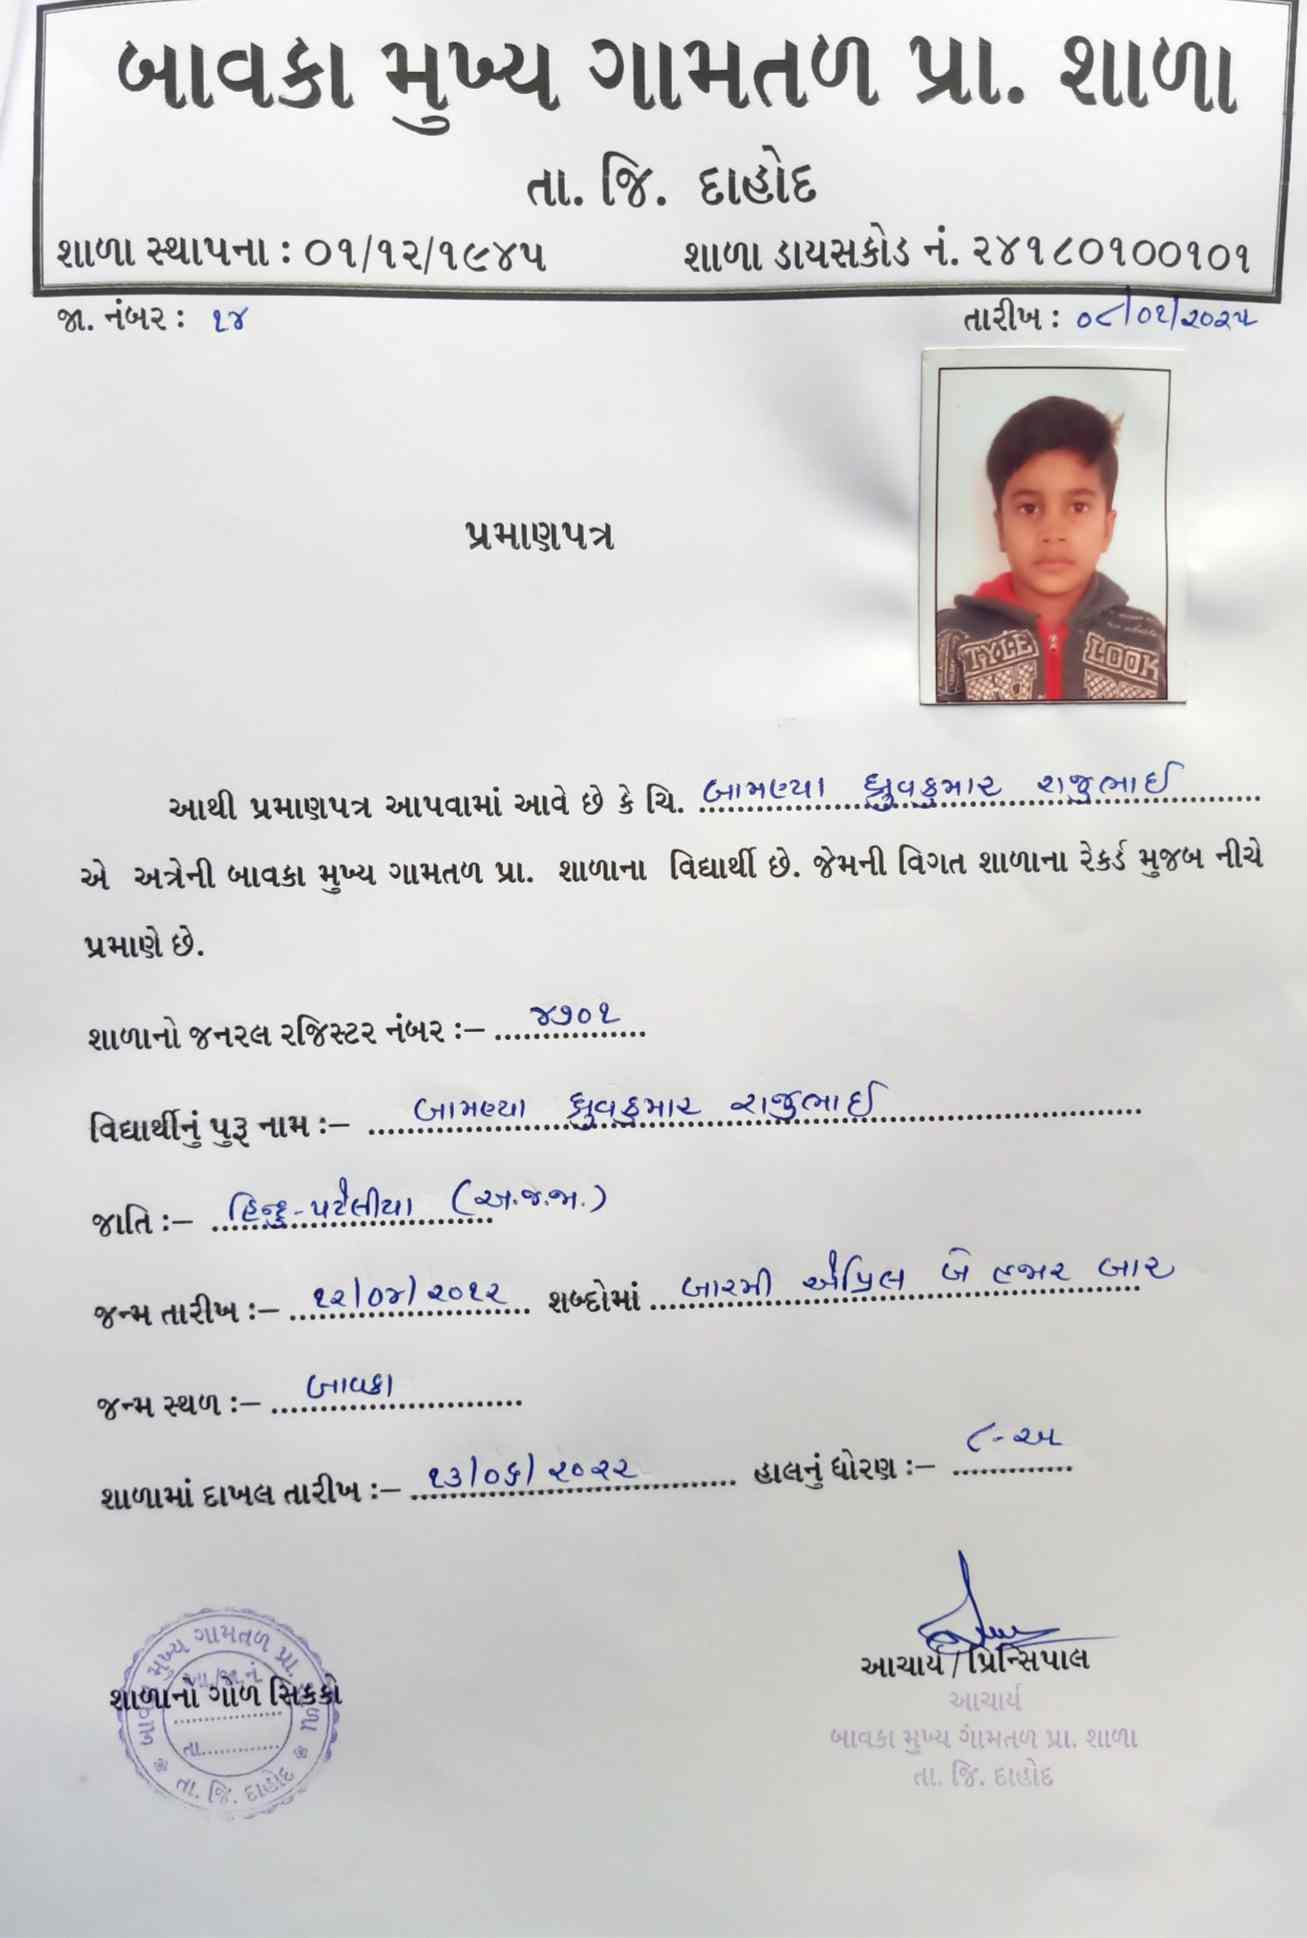 બાવકા મુખ્ય ગામતળ પ્રા. શાળા
તા. જિ. દાહોદ
શાળા સ્થાપના : ૦૧/૧૨/૧૯૪૫ શાળા ડાયસકોડ નં. ૨૪૧૮૦૧૦૦૧૦૧
જા. નંબર : ૧૪ તારીખ : ૦૮/૦૧/૨૦૨૫
TYLE LOOK
પ્રમાણપત્ર
આથી પ્રમાણપત્ર આપવામાં આવે છે કે ચિ. બામણ્યા ધ્રુવકુમાર રાજુભાઈ
એ અત્રેની બાવકા મુખ્ય ગામતળ પ્રા. શાળાના વિદ્યાર્થી છે. જેમની વિગત શાળાના રેકર્ડ મુજબ નીચે
પ્રમાણે છે.
શાળાનો જનરલ રજિસ્ટર નંબર :– ૪૭૦૧
વિદ્યાર્થીનું પુરૂ નામ :– બામણ્યા ધ્રુવકુમાર રાજુભાઈ
જાતિ :– હિન્દુ-પટેલીયા (અ.જ.જા.)
જન્મ તારીખ :– ૧૨/૦૪/૨૦૧૨ શબ્દોમાં બારમી એપ્રિલ બે હજાર બાર
જન્મ સ્થળ :– બાવકા
શાળામાં દાખલ તારીખ :– ૧૩/૦૬/૨૦૨૨ હાલનું ધોરણ :– ૮-અ
આચાર્ય / પ્રિન્સિપાલ
આચાર્ય
બાવકા મુખ્ય ગામતળ પ્રા. શાળા
તા. જિ. દાહોદ
શાળાનો ગોળ સિક્કો
બાવકા મુખ્ય ગામતળ પ્રા. શાળા
આ./જા.નં
તા.
તા. જિ. દાહોદ